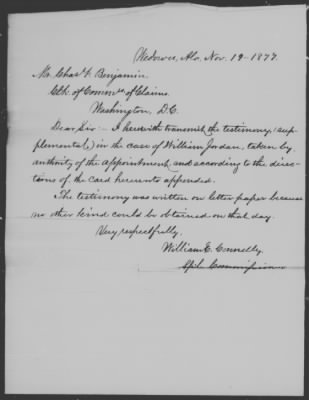 Wedowee, Ala. Nov. 19-1877.
Mr. Chas. F. Benjamin,
Clk. of Commrs. of Claims
Washington, D.C.
Dear Sir:- I herewith transmit the testimony, (sup-
plemental,) in the case of William Jordan, taken by
authority of the appointment, and according to the direc-
tions of the card hereunto appended.
The testimony was written on letter paper because
no other kind could be obtained on that day.
Very respectfully,
William E. Connelly,
Spl. Commissioner